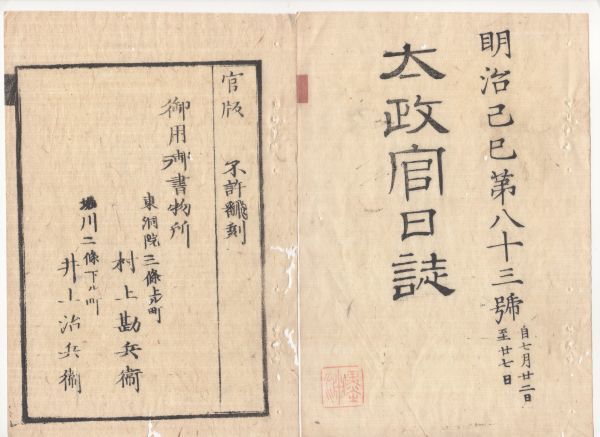 明治己巳第八十三號
自七月廿二日
至廿七日
太政官日誌
官版 不許翻刻
御用御書物所
東洞院三條上ル町
村上勘兵衛
堀川二條下ル町
井上治兵衛